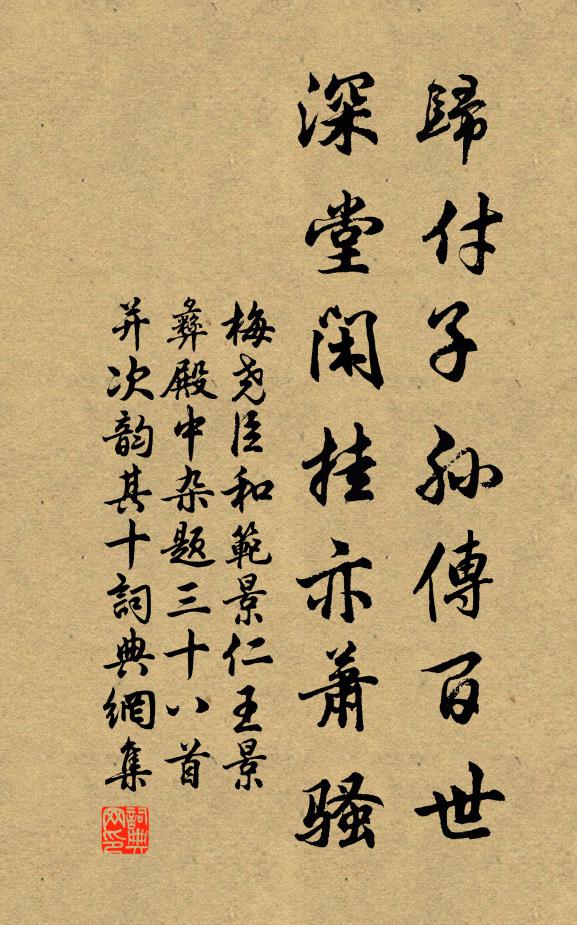 歸付子孫傳百世
深堂閑挂亦蕭騷
梅尧臣和範景仁王景
彝殿中杂题三十八首
并次韵其十詞典網集
詞典
网印